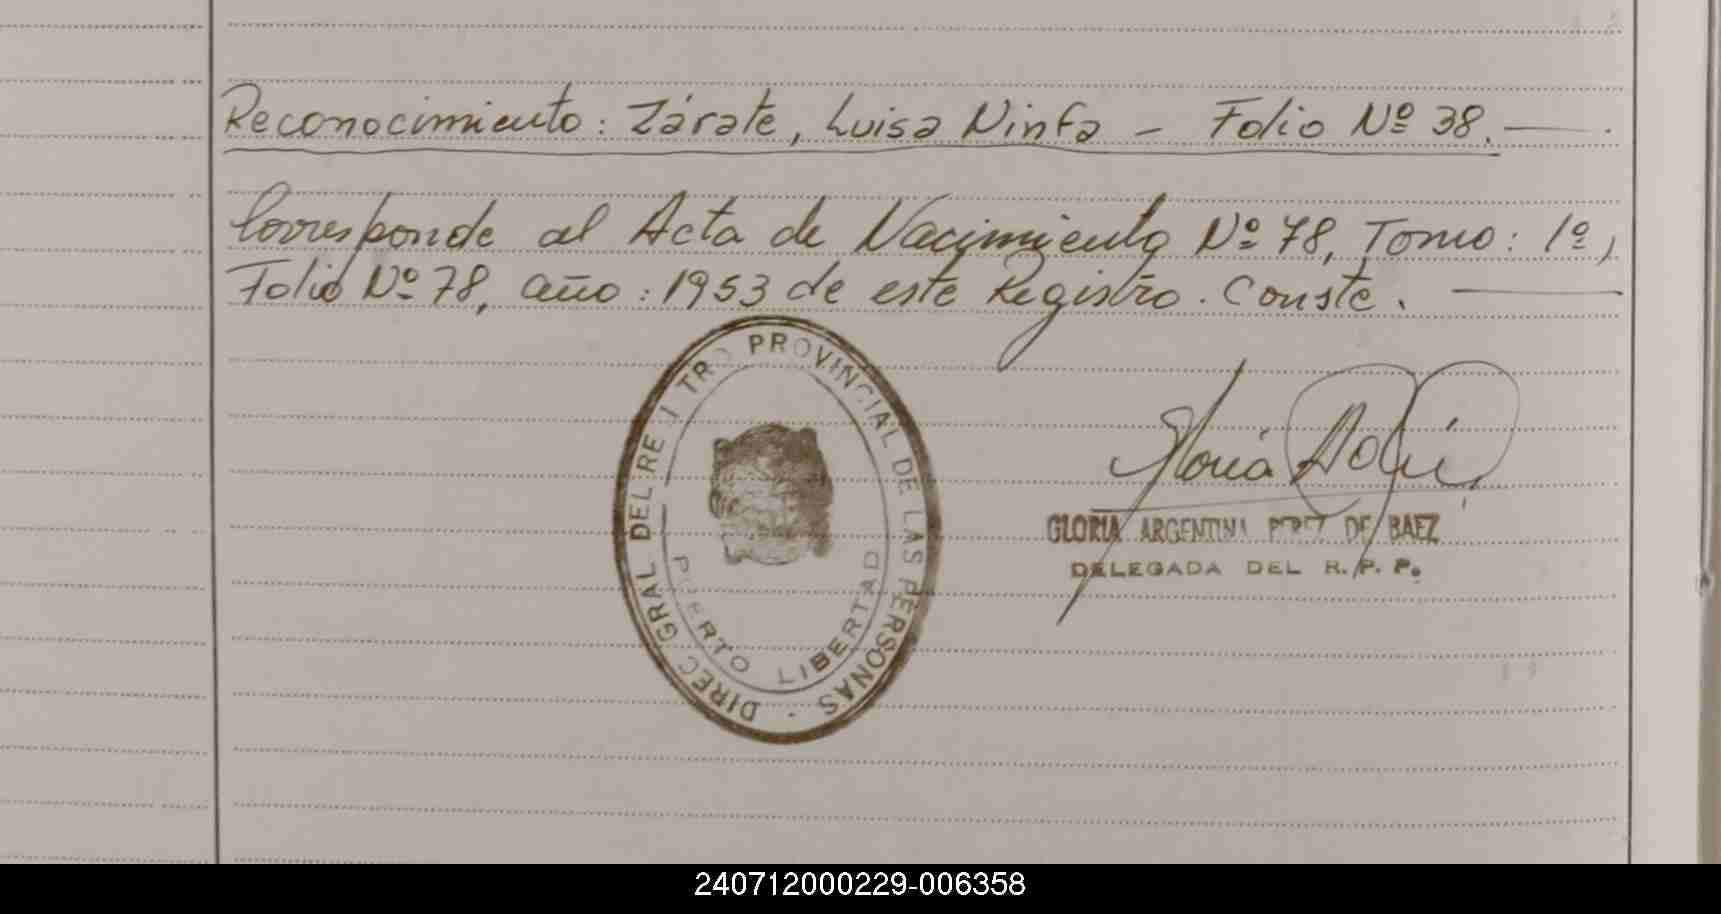 Reconocimiento: Zárate, Luisa Ninfa - Folio Nº 38.
Corresponde al Acta de Nacimiento Nº 78, Tomo: 1º,
Folio Nº 78, año: 1953 de este Registro. Conste.
DIREC GRAL DEL RE I TRO PROVINCIAL DE LAS PERSONAS -
PUERTO LIBERTAD
GLORIA ARGENTINA PEREZ DE BAEZ
DELEGADA DEL R. P. P.
240712000229-006358